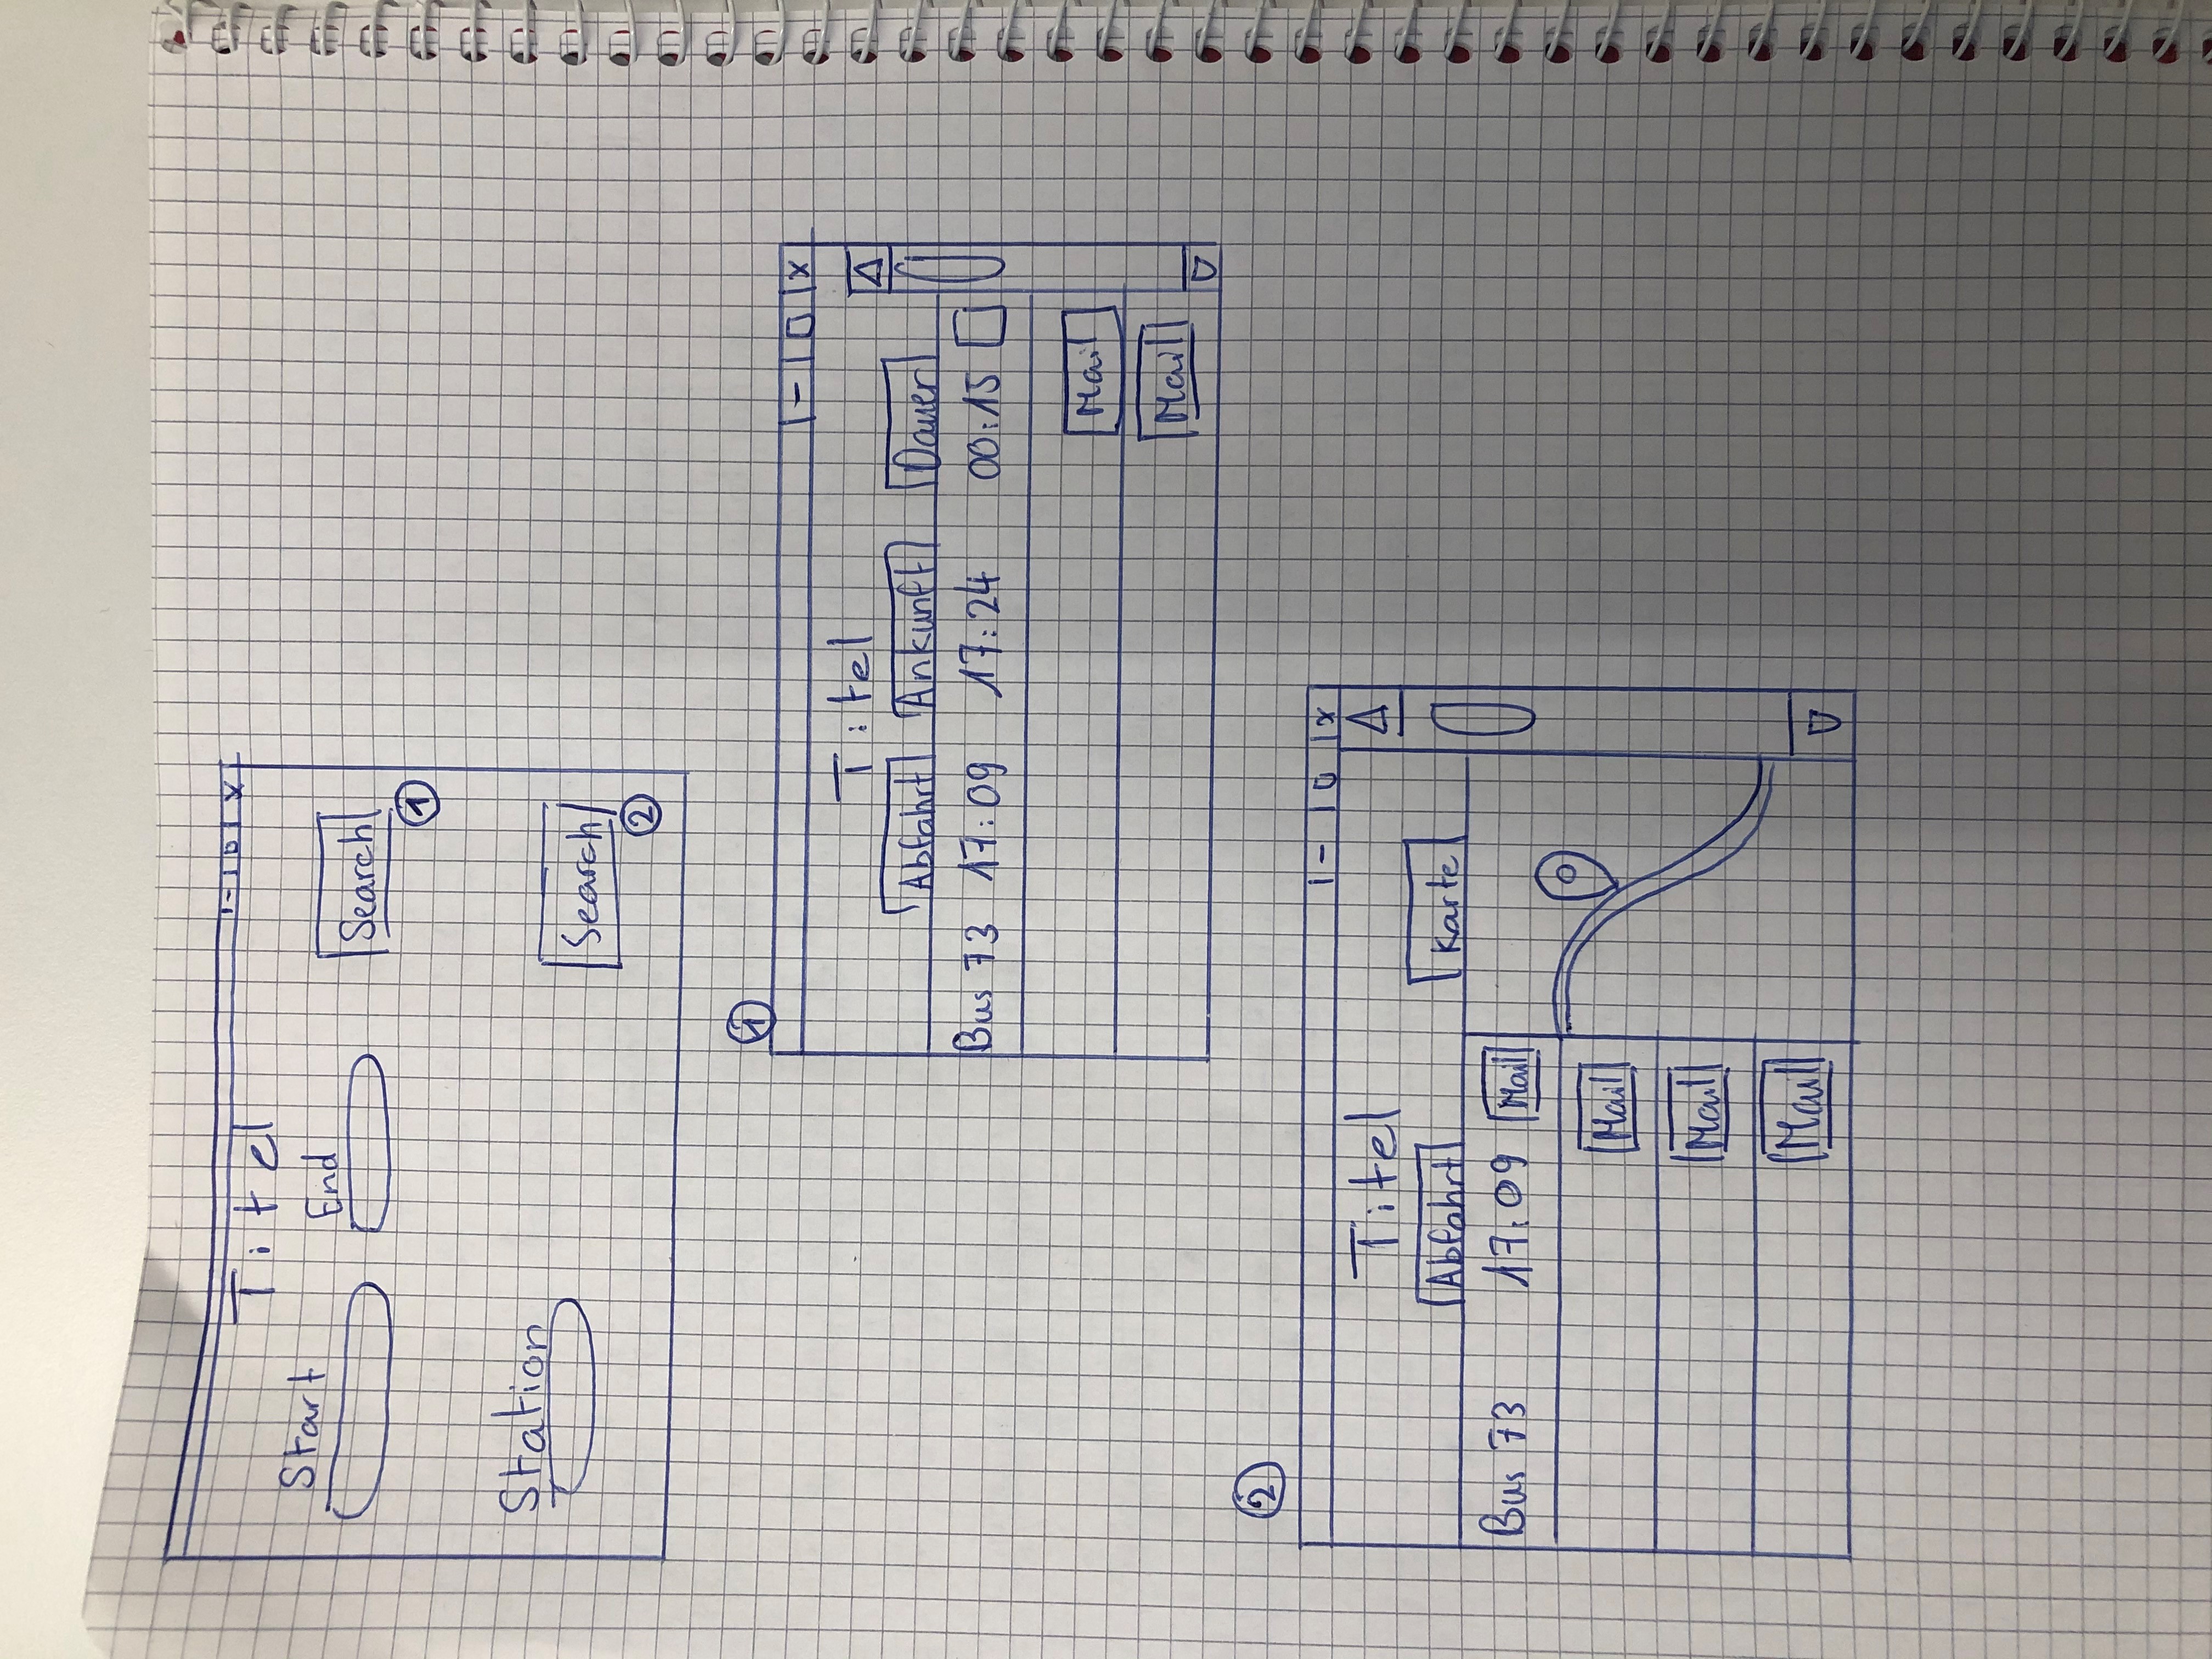 - □ x
Titel
Start End Search
①
Station Search
②
①
- □ x
Titel
Abfahrt Ankunft Dauer
Bus 73 17:09 17:24 00:15
Mail
Mail
②
- □ x
Titel
Abfahrt Karte
Bus 73 17:09 Mail
Mail
Mail
Mail